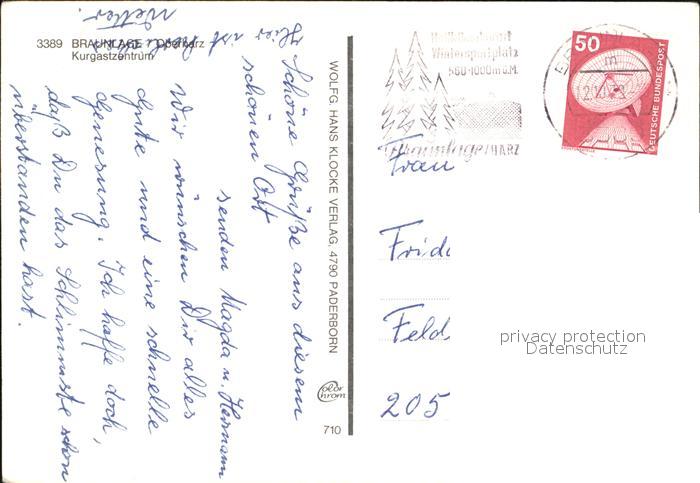 3389 BRAUNLAGE / Oberharz
Kurgastzentrum
Schöne Grüße aus diesem
schönen Ort
senden Magda u. Hermann
Wir wünschen Dir alles
Gute und eine schnelle
Genesung. Ich hoffe doch,
daß Du das Schlimmste schon
überstanden hast.
Hier ist
Wetter.
WOLFG. HANS KLOCKE VERLAG, 4790 PADERBORN
Color
chrom
710
Heilklimakurort
Wintersportplatz
560-1000m ü.M.
Braunlage/HARZ
50
DEUTSCHE BUNDESPOST
m
Frau
Frida
Feld
205
privacy protection
Datenschutz